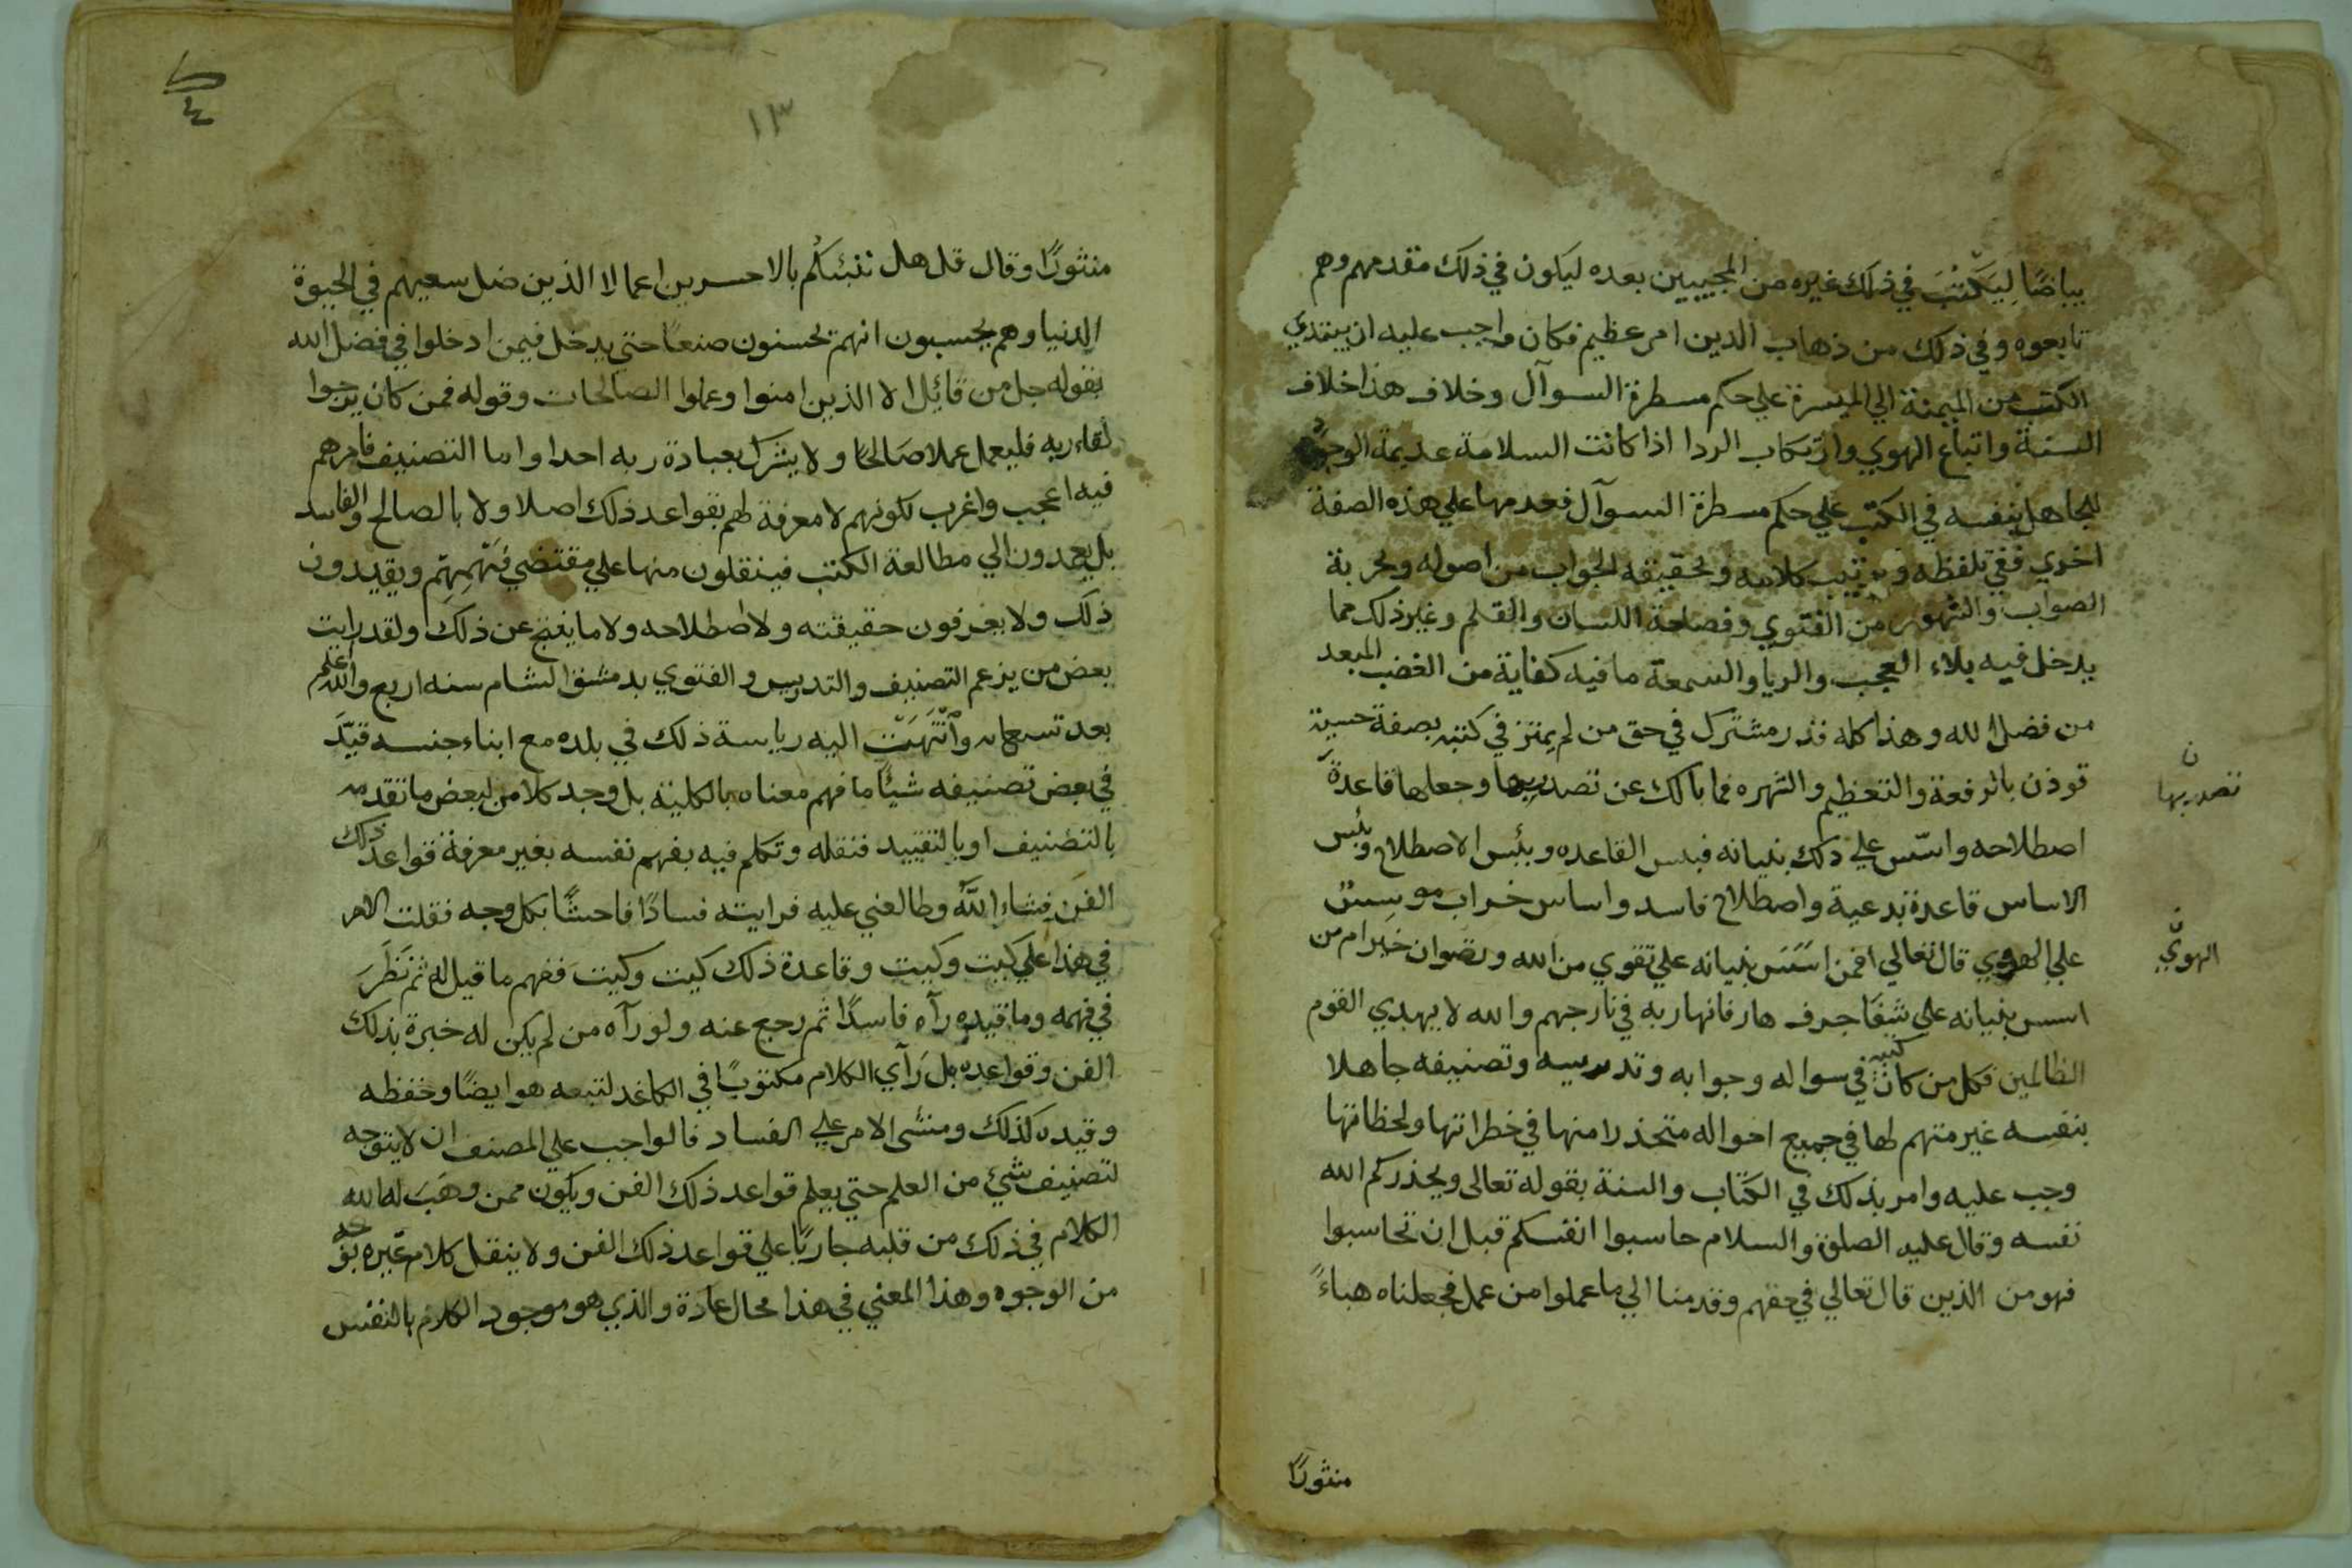 بياضًا لِيَكْتُبَ في ذلك غيره من المجيبين بعده ليكون في ذلك مقدمهم وهم
تابعوه وفي ذلك من ذهاب الدين امر عظيم فكان واجب عليه ان يبتدي
الكتب من الميمنة الي الميسرة علي حكم مسطرة السوآل وخلاف هذا خلاف
السنة واتباع الهوي وارتكاب الردا اذا كانت السلامة عديمة الوجود
للجاهل بنفسه في الكتب علي حكم مسطرة السوآل فعدمها علي هذه الصفة
اخري ففي تلفظه وترتيب كلامه وتحقيقه للجواب من اصوله وتحرية
الصواب والشهور من الفتوي وفصاحة اللسان والقلم وغير ذلك مما
يدخل فيه بلاء العجب والريا والسمعة ما فيه كفاية من الغضب المبعد
من فضل الله وهذا كله قدر مشترك في حق من لم يمتز في كتبه بصفة حسية
توذن بالرفعة والتعظيم والشهره فما بالك عن تصدريها وجعلها قاعدةَ
ن
تصدربها
اصطلاحه واسّس علي ذلك بنيانه فبئس القاعده وبئس الاصطلاح وبئس
الاساس قاعدة بدعية واصطلاح فاسد واساس خراب موسس
علي الهوي قال تعالي افمن اسّسَ بنيانه علي تقوي من الله ورضوان خير ام من
ن
الهويّ
اسس بنيانه علي شفا جرف هار فانهار به في نار جهنم والله لا يهدي القوم
الظالمين فكل من كان في كتبه في سواله وجوابه وتدريسه وتصنيفه جاهلا
بنفسه غير متهم لها في جميع احواله متحذرا منها في خطراتها ولحظاتها
وجب عليه وامر بذلك في الكتاب والسنة بقوله تعالى ويحذركم الله
نفسه وقال عليه الصلوة والسلام حاسبوا انفسكم قبل ان تحاسبوا
فهو من الذين قال تعالي في حقهم وقدمنا الي ما عملوا من عمل فجعلناه هباءً
منثورًا
١٣
منثورًا وقال قل هل ننبئكُم بالاخسرين اعمالا الذين ضل سعيهم في الحيوة
الدنيا وهم يحسبون انهم يحسنون صنعًا حتي يدخل فيمن ادخلوا في فضل الله
بقوله جل من قائل الا الذين امنوا وعملوا الصالحات وقوله فمن كان يرجوا
لقاء ربه فليعمل عملا صَالحًا ولا يشرك بعبادة ربه احدا واما التصنيف فامرهم
فيه اعجب واغرب لكونهم لا معرفة لهم بقواعد ذلك اصلا ولا بالصالح والفاسد
بل يعمدون الي مطالعة الكتب فينقلون منها علي مقتضي فَهْمِهِم ويقيدون
ذلك ولا يعرفون حقيقته ولا اصطلاحه ولا ما يفتح عن ذلك ولقد رايت
بعض من يزعم التصنيف والتدريس والفتوي بدمشق الشام سنه اربع والله اعلم
بعد تسعماه وٱنْتَهَتْ اليه رياسة ذلك في بلده مع ابناء جنسه قيَّدَ
في بعض تصنيفه شيئًا ما فهم معناه بالكلية بل وجد كلامن لبعض ما تقدمه
بالتصنيف او بالتقييد فنقله وتكلم فيه بفهم نفسه بغير معرفة قواعد ذلك
الفن فشاء الله وطالعني عليه فرايته فسادًا فاحشًا بكل وجه فقلت الامر
في هذا علي كيت وكيت وقاعدة ذلك كيت وكيتَ ففهم ما قيل له ثم نَظَرَ
في فهمه وما قيده رآه فاسدًا ثم رجع عنه ولو رآه من لم يكن له خبرة بذلك
الفن وقواعده بل رَآي الكلام مكتوبًا في الكاغد لتبعه هو ايضًا وحفظه
وقيده كذلك ومشى الامر علي الفساد فالواجب علي المصنف ان لا يتوجه
لتصنيف شيئ من العلم حتي يعلم قواعد ذلك الفن ويكون ممن وهَبَ له الله
الكلام في ذلك من قلبه جاريًا علي قواعد ذلك الفن ولا ينقل كلام غيره بوجه
من الوجوه وهذا المعني في هذا محال عادة والذي هو موجود الكلام بالنفس